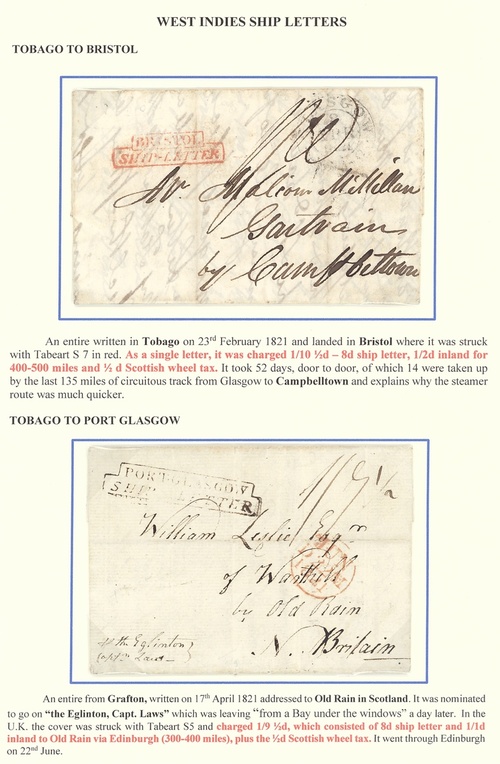 WEST INDIES SHIP LETTERS
TOBAGO TO BRISTOL
BRISTOL
SHIP-LETTER
Mr. Malcom McMillan
Gartvain
by Campbeltown
An entire written in Tobago on 23rd February 1821 and landed in Bristol where it was struck
with Tabeart S 7 in red. As a single letter, it was charged 1/10 ½d – 8d ship letter, 1/2d inland for
400-500 miles and ½ d Scottish wheel tax. It took 52 days, door to door, of which 14 were taken up
by the last 135 miles of circuitous track from Glasgow to Campbelltown and explains why the steamer
route was much quicker.
TOBAGO TO PORT GLASGOW
PORT-GLASGOW
SHIP LETTER
1/9 1/2
William Leslie Esqr
of Warthill
by Old Rain
N. Britain
pr the Eglinton
Captn Laws
An entire from Grafton, written on 17th April 1821 addressed to Old Rain in Scotland. It was nominated
to go on “the Eglinton, Capt. Laws” which was leaving “from a Bay under the windows” a day later. In the
U.K. the cover was struck with Tabeart S5 and charged 1/9 ½d, which consisted of 8d ship letter and 1/1d
inland to Old Rain via Edinburgh (300-400 miles), plus the ½d Scottish wheel tax. It went through Edinburgh
on 22nd June.